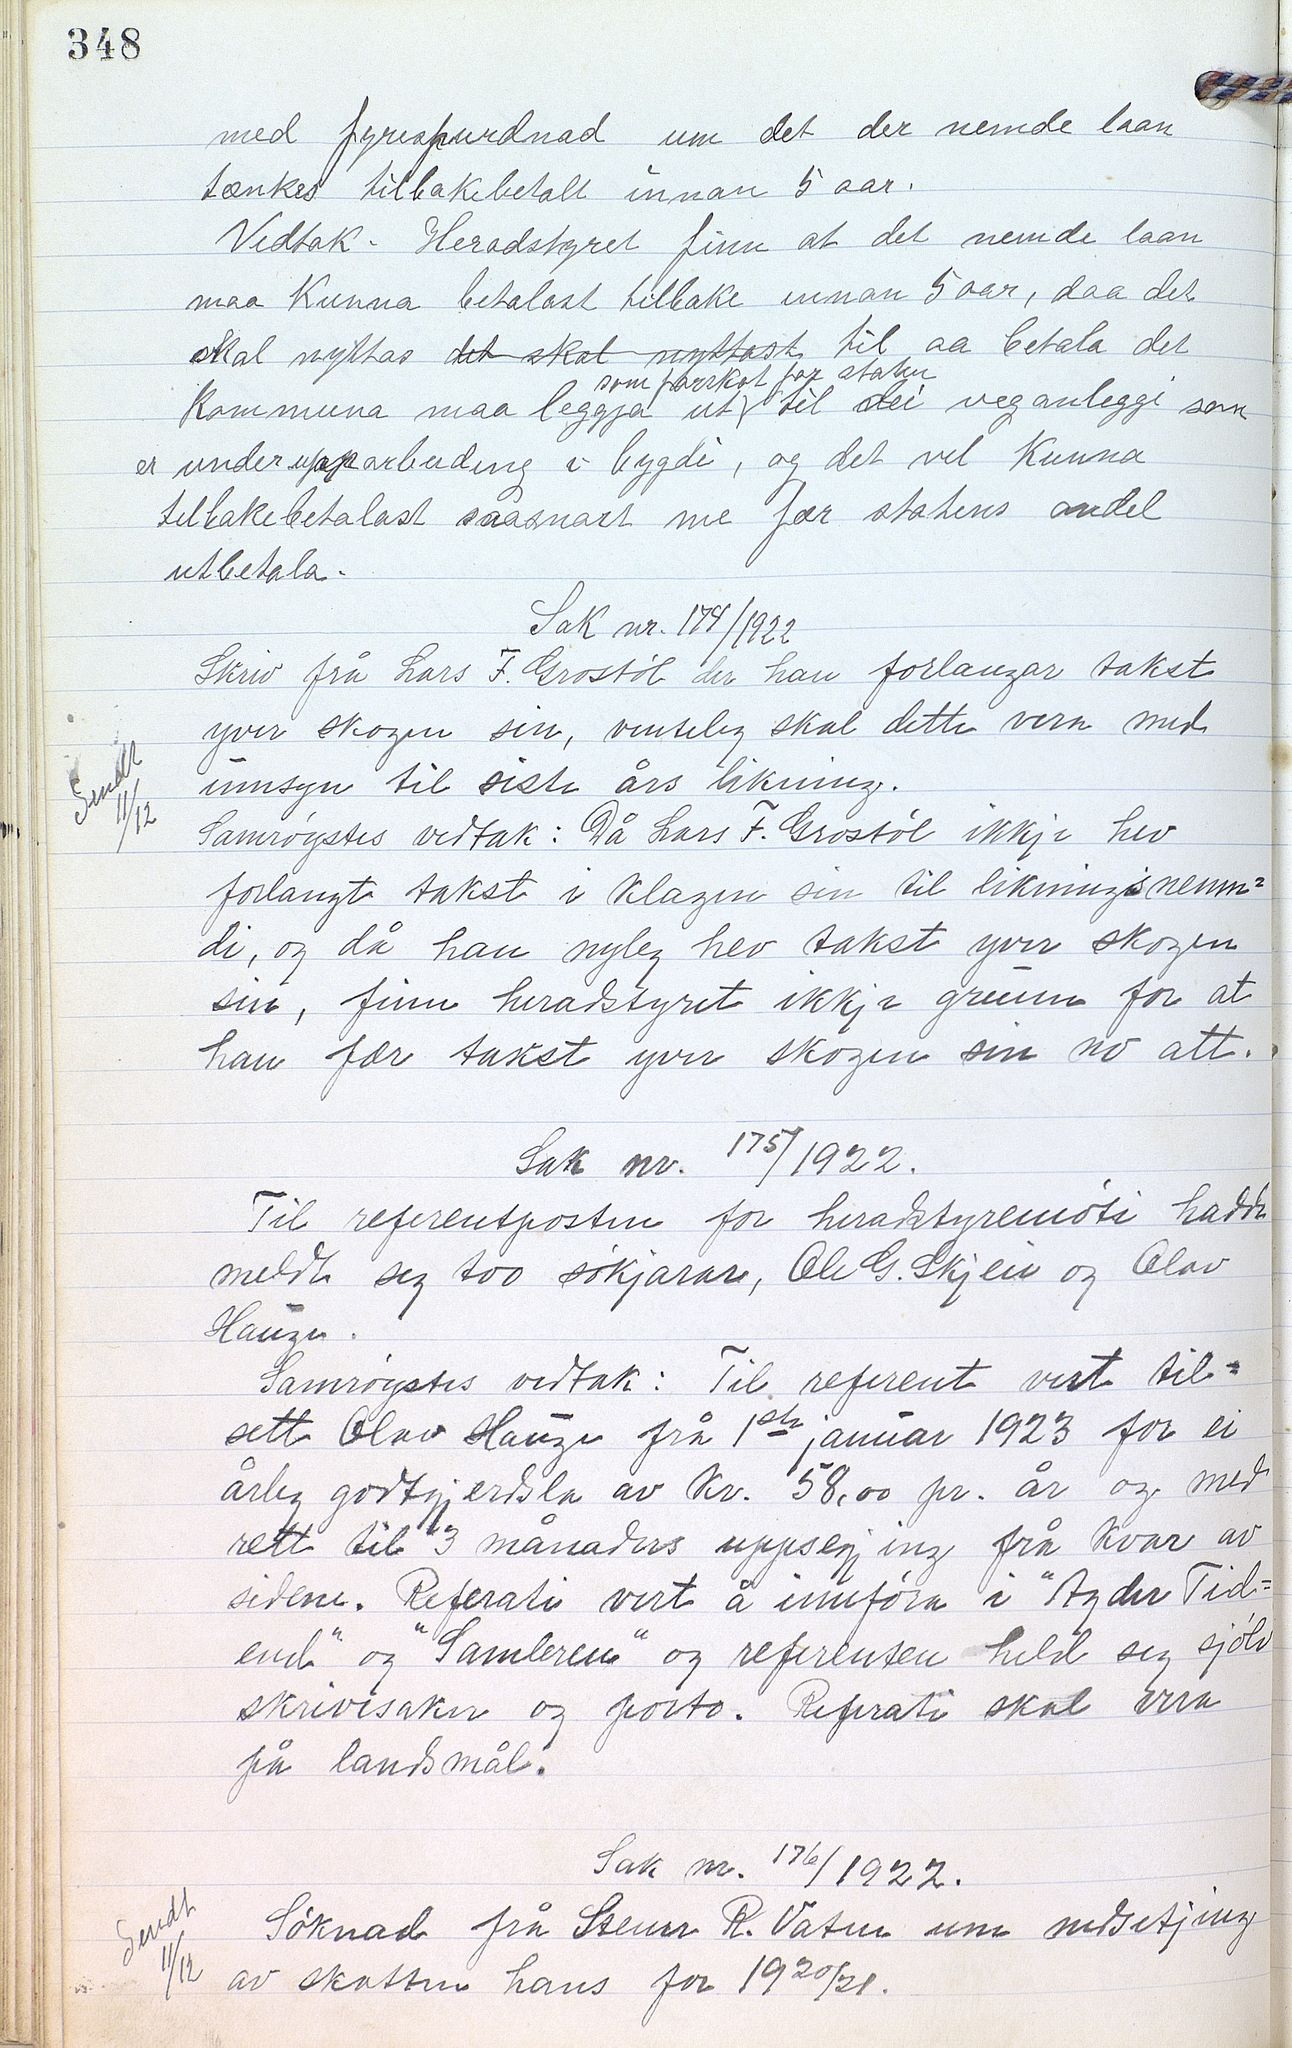 348
med fyrespurdnad um det der nemde laan
tænkes tilbakebetalt innan 5 aar.
Vedtak. Heradstyret finn at det nemde laan
maa kunna betalast tilbake innan 5 aar, daa det
skal nyttas det skal nyttast til aa betala det
som forskot for staten
kommuna maa leggja ut til dei veganleggi som
er under upparbeiding i bygdi, og det vel kunna
tilbakebetalast saasnart me fær statens andel
utbetala.
Sak nr. 174/1922
Skriv frå Lars F. Grostöl der han forlangar takst
yver skogen sin, venteleg skal dette vera med
innsyn til siste års likning.
Sendt
11/12
Samröystes vedtak: Då Lars F. Grostöl ikkje hev
forlangt takst i klagen sin til likningsnemn=
di, og då han nyleg hev takst yver skogen
sin, finn heradstyret ikkje grunn for at
han fær takst yver skogen sin no att.
Sak nr. 175/1922.
Til referentposten for heradstyremöti hadde
meldt seg too sökjarar, Ole G. Skjeie og Olav
Hauge.
Samröystes vedtak: Til referent vert til=
sett Olav Hauge frå 1ste januar 1923 for ei
årleg godtgjerdsla av kr. 58,00 pr. år og med
rett til 3 månaders uppsegjing frå kvar av
sidene. Referati vert å innföra i "Agder Tid=
end" og "Samleren" og referenten held seg sjölv
skrivesaker og porto. Referati skal vera
på landsmål.
Sak nr. 176/1922.
Sendt
11/12
Söknad frå Steinar R. Vatne um nedsetjing
av skatten hans for 1920/21.